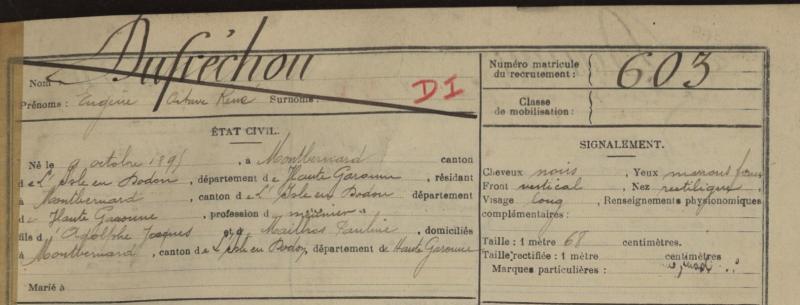 Nom Dufréchou
Prénoms : Eugène Octave René Surnoms :
DI
Numéro matricule du recrutement : 603
Classe de mobilisation :
ÉTAT CIVIL.
Né le 9 octobre 189 , à Montbernard canton
de L'Isle en Dodon, département de Haute Garonne, résidant
à Montbernard, canton de L'Isle en Dodon département
de Haute Garonne, profession de meunier
fils d'Adolphe Jacques et de Pauline, domiciliés
à Montbernard, canton de L'Isle en Dodon, département de Haute Garonne
Marié à
SIGNALEMENT.
Cheveux noirs Yeux marrons
Front vertical, Nez rectiligne,
Visage long, Renseignements physionomiques
complémentaires :
Taille : 1 mètre 68 centimètres.
Taille rectifiée : 1 mètre centimètres
Marques particulières :